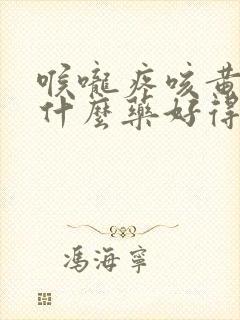 喉嚨疼咳黃
什麼藥好得
馮海寧